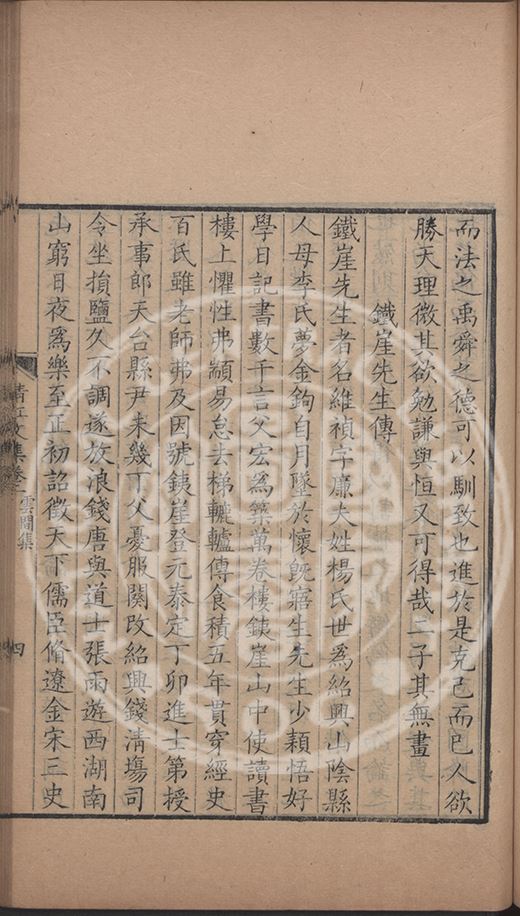 而法之禹舜之德可以馴致也進於是克己而巳人欲
勝天理微其欲勉謙與恒又可得哉二子其無畫
鐵崖先生傳
鐵崖先生者名維禎字廉夫姓楊氏世爲紹興山陰縣
人母李氏夢金鉤自月墜於懷旣寤生先生少穎悟好
學日記書數千言父宏為築萬卷樓銕崖山中使讀書
樓上懼性弗顓易怠去梯轆轤傳食積五年貫穿經史
百氏雖老師弗及因號銕崖登元泰定丁卯進士第授
承事郎天台縣尹未幾丁父憂服闋改紹興錢清塲司
令坐損鹽久不調遂放浪錢唐與道士張雨遊西湖南
山窮日夜爲樂至正初詔徵天下儒臣脩遼金宋三史
清江文集卷二 雲間集
四